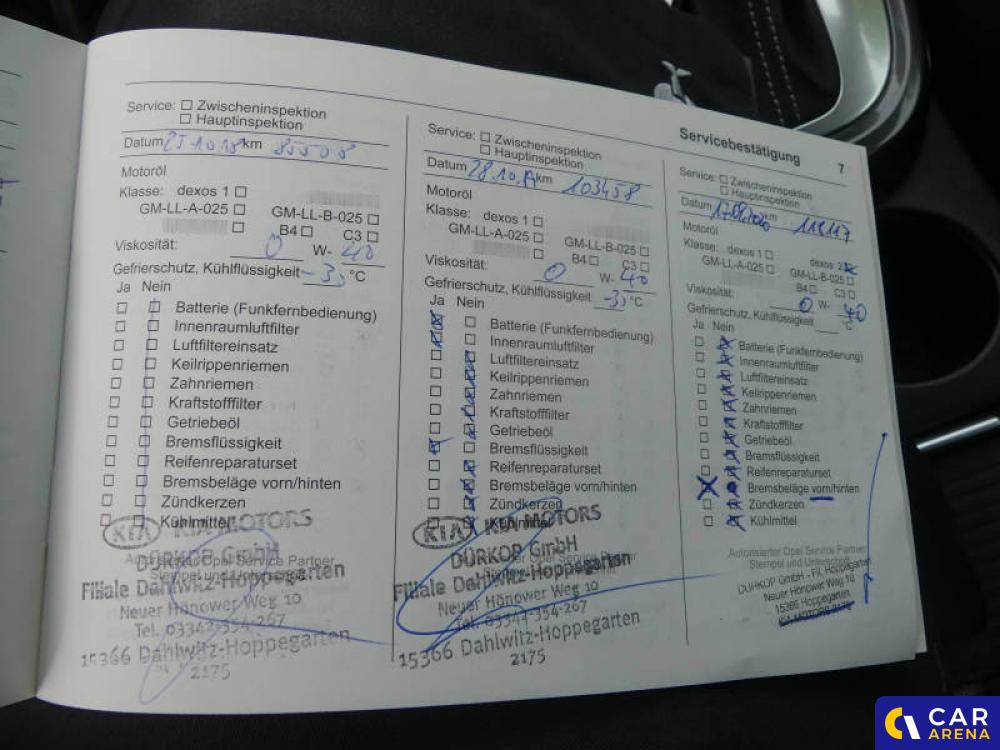 Servicebestätigung 7
Service: Zwischeninspektion
Hauptinspektion
Datum 25.10.18 km 85508
Motoröl
Klasse: dexos 1
GM-LL-A-025 GM-LL-B-025
B4 C3
Viskosität: 0 W- 40
Gefrierschutz, Kühlflüssigkeit °C
Ja Nein
Batterie (Funkfernbedienung)
Innenraumluftfilter
Luftfiltereinsatz
Keilrippenriemen
Zahnriemen
Kraftstofffilter
Getriebeöl
Bremsflüssigkeit
Reifenreparaturset
Bremsbeläge vorn/hinten
Zündkerzen
Kühlmittel
KIA KIA MOTORS
DÜRKOP GmbH
Filiale Dahlwitz-Hoppegarten
Neuer Hönower Weg 10
Tel. 03342-354-267
15366 Dahlwitz-Hoppegarten
2175
Service: Zwischeninspektion
Hauptinspektion
Datum 28.10. km 103458
Motoröl
Klasse: dexos 1
GM-LL-A-025 GM-LL-B-025
B4 C3
Viskosität: 0 W- 40
Gefrierschutz, Kühlflüssigkeit °C
Ja Nein
Batterie (Funkfernbedienung)
Innenraumluftfilter
Luftfiltereinsatz
Keilrippenriemen
Zahnriemen
Kraftstofffilter
Getriebeöl
Bremsflüssigkeit
Reifenreparaturset
Bremsbeläge vorn/hinten
Zündkerzen
Kühlmittel
KIA KIA MOTORS
DÜRKOP GmbH
Filiale Dahlwitz-Hoppegarten
Neuer Hönower Weg 10
Tel. 03342-354-267
15366 Dahlwitz-Hoppegarten
2175
Service: Zwischeninspektion
Hauptinspektion
Datum km
Motoröl
Klasse: dexos 1 dexos 2
GM-LL-A-025 GM-LL-B-025
B4 C3
Viskosität: 0 W- 40
Gefrierschutz, Kühlflüssigkeit °C
Ja Nein
Batterie (Funkfernbedienung)
Innenraumluftfilter
Luftfiltereinsatz
Keilrippenriemen
Zahnriemen
Kraftstofffilter
Getriebeöl
Bremsflüssigkeit
Reifenreparaturset
Bremsbeläge vorn/hinten
Zündkerzen
Kühlmittel
Autorisierter Opel Service Partner
Stempel und Unterschrift
DÜRKOP GmbH - Fil. Hoppegarten
Neuer Hönower Weg 10
15366 Hoppegarten
CAR
ARENA